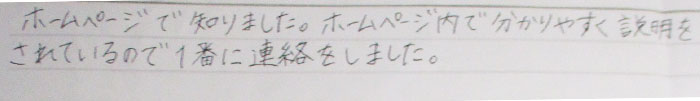 ホームページで知りました。ホームページ内で分かりやすく説明を
されているので1番に連絡をしました。